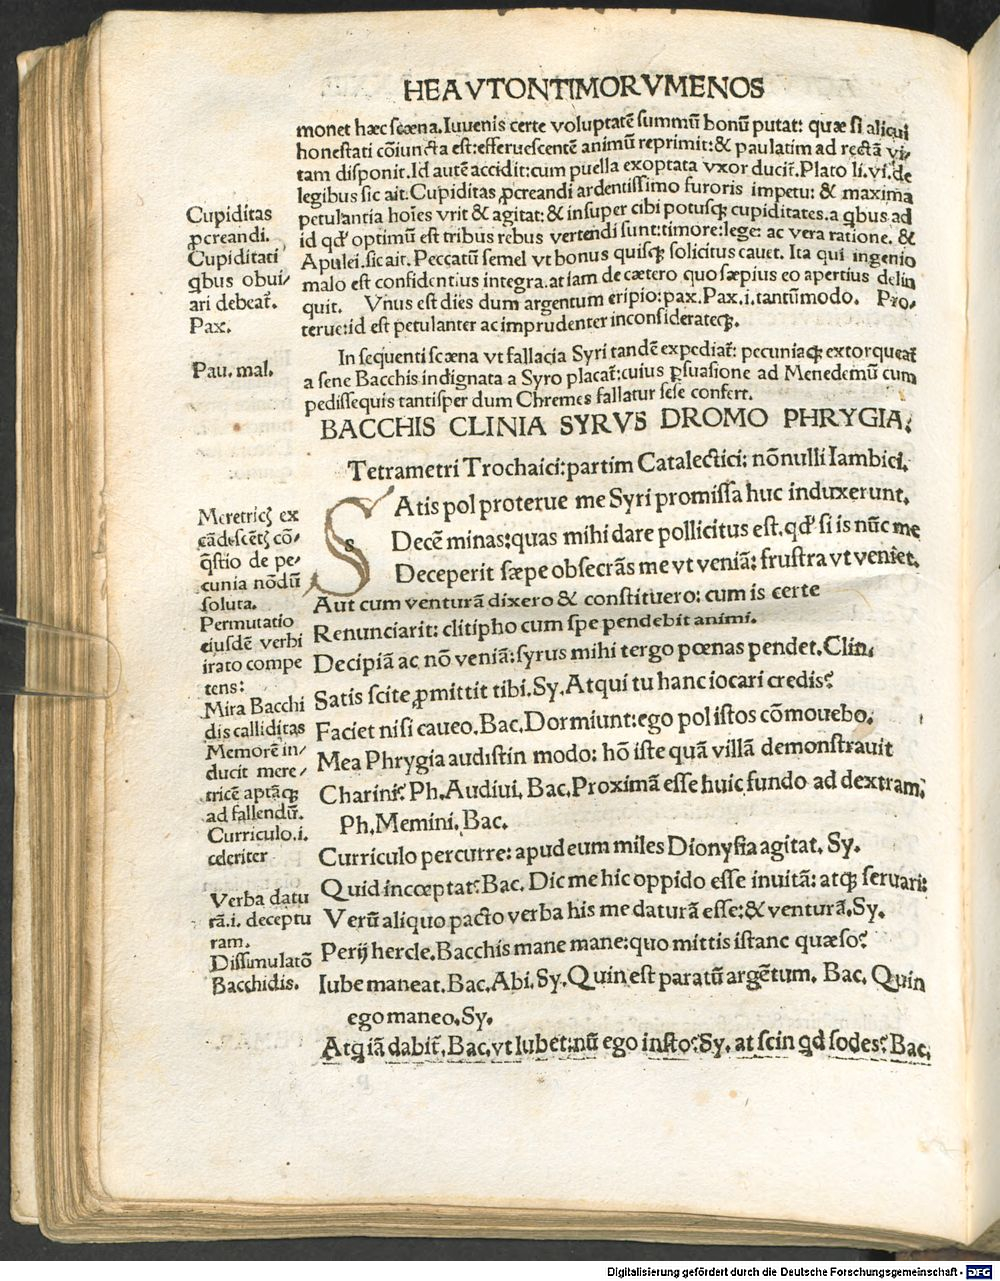 HEAVTONTIMORVMENOS
monet hæc scæna. Iuuenis certe voluptatē summū bonū putat: quæ si alicui
honestati cōiuncta est: efferuescentē animū reprimit: & paulatim ad rectā vi-
tam disponit. Id autē accidit: cum puella exoptata vxor ducit̃. Plato li. vi. de
legibus sic ait. Cupiditas ꝓcreandi ardentissimo furoris impetu: & maxima
petulantia hoīes vrit & agitat: & insuper cibi potusqꝫ cupiditates. a qbus ad
id qd' optimū est tribus rebus vertendi sunt: timore: lege: ac vera ratione. &
Apulei. sic ait. Peccatū semel vt bonus quisqꝫ solicitus cauet. Ita qui ingenio
malo est confidentius integra. at iam de cætero quo sæpius eo apertius delin
quit. Vnus est dies dum argentum eripio: pax. Pax .i. tantūmodo. Pro-
terue: id est petulanter ac imprudenter inconsiderateqꝫ.
In sequenti scæna vt fallacia Syri tandē expediat̃: pecuniaqꝫ extorqueat̃
a sene Bacchis indignata a Syro placat̃: cuius ꝑsuasione ad Menedemū cum
pedissequis tantisper dum Chremes fallatur sese confert.
BACCHIS CLINIA SYRVS DROMO PHRYGIA.
Tetrametri Trochaici: partim Catalectici: nōnulli Iambici.
SAtis pol proterue me Syri promissa huc induxerunt.
Decē minas: quas mihi dare pollicitus est. qd' si is nūc me
Deceperit sæpe obsecrās me vt veniā: frustra vt veniet.
Aut cum venturā dixero & constituero: cum is certe
Renunciarit: clitipho cum spe pendebit animi.
Decipiā ac nō veniā: syrus mihi tergo pœnas pendet. Clin.
Satis scite ꝓmittit tibi. Sy. Atqui tu hanc iocari credis?
Faciet nisi caueo. Bac. Dormiunt: ego pol istos cōmouebo.
Mea Phrygia audistin modo: hō iste quā villā demonstrauit
Charini? Ph. Audiui. Bac. Proximā esse huic fundo ad dextram.
Ph. Memini. Bac.
Curriculo percurre: apud eum miles Dionysia agitat. Sy.
Quid incœptat? Bac. Dic me hic oppido esse inuitā: atqꝫ seruari:
Verū aliquo pacto verba his me daturā esse: & venturā. Sy.
Perij hercle. Bacchis mane mane: quo mittis istanc quæso?
Iube maneat. Bac. Abi. Sy. Quin est paratū argētum. Bac. Quin
ego maneo. Sy.
Atq iā dabit̃. Bac. vt lubet: nū ego insto? Sy. at scin qd sodes? Bac.
Cupiditas
ꝓcreandi.
Cupiditati
qbus obui-
ari debeat̃.
Pax.
Pau. mal.
Meretricꝫ ex
cādescētꝫ cō-
q̄stio de pe-
cunia nōdū
soluta.
Permutatio
eiusdē verbi
irato compe
tens:
Mira Bacchi
dis calliditas
Memorē in-
ducit mere-
tricē aptāqꝫ
ad fallendū.
Curriculo .i.
celeriter
Verba datu
rā .i. deceptu
ram.
Dissimulatō
Bacchidis.
Digitalisierung gefördert durch die Deutsche Forschungsgemeinschaft - DFG